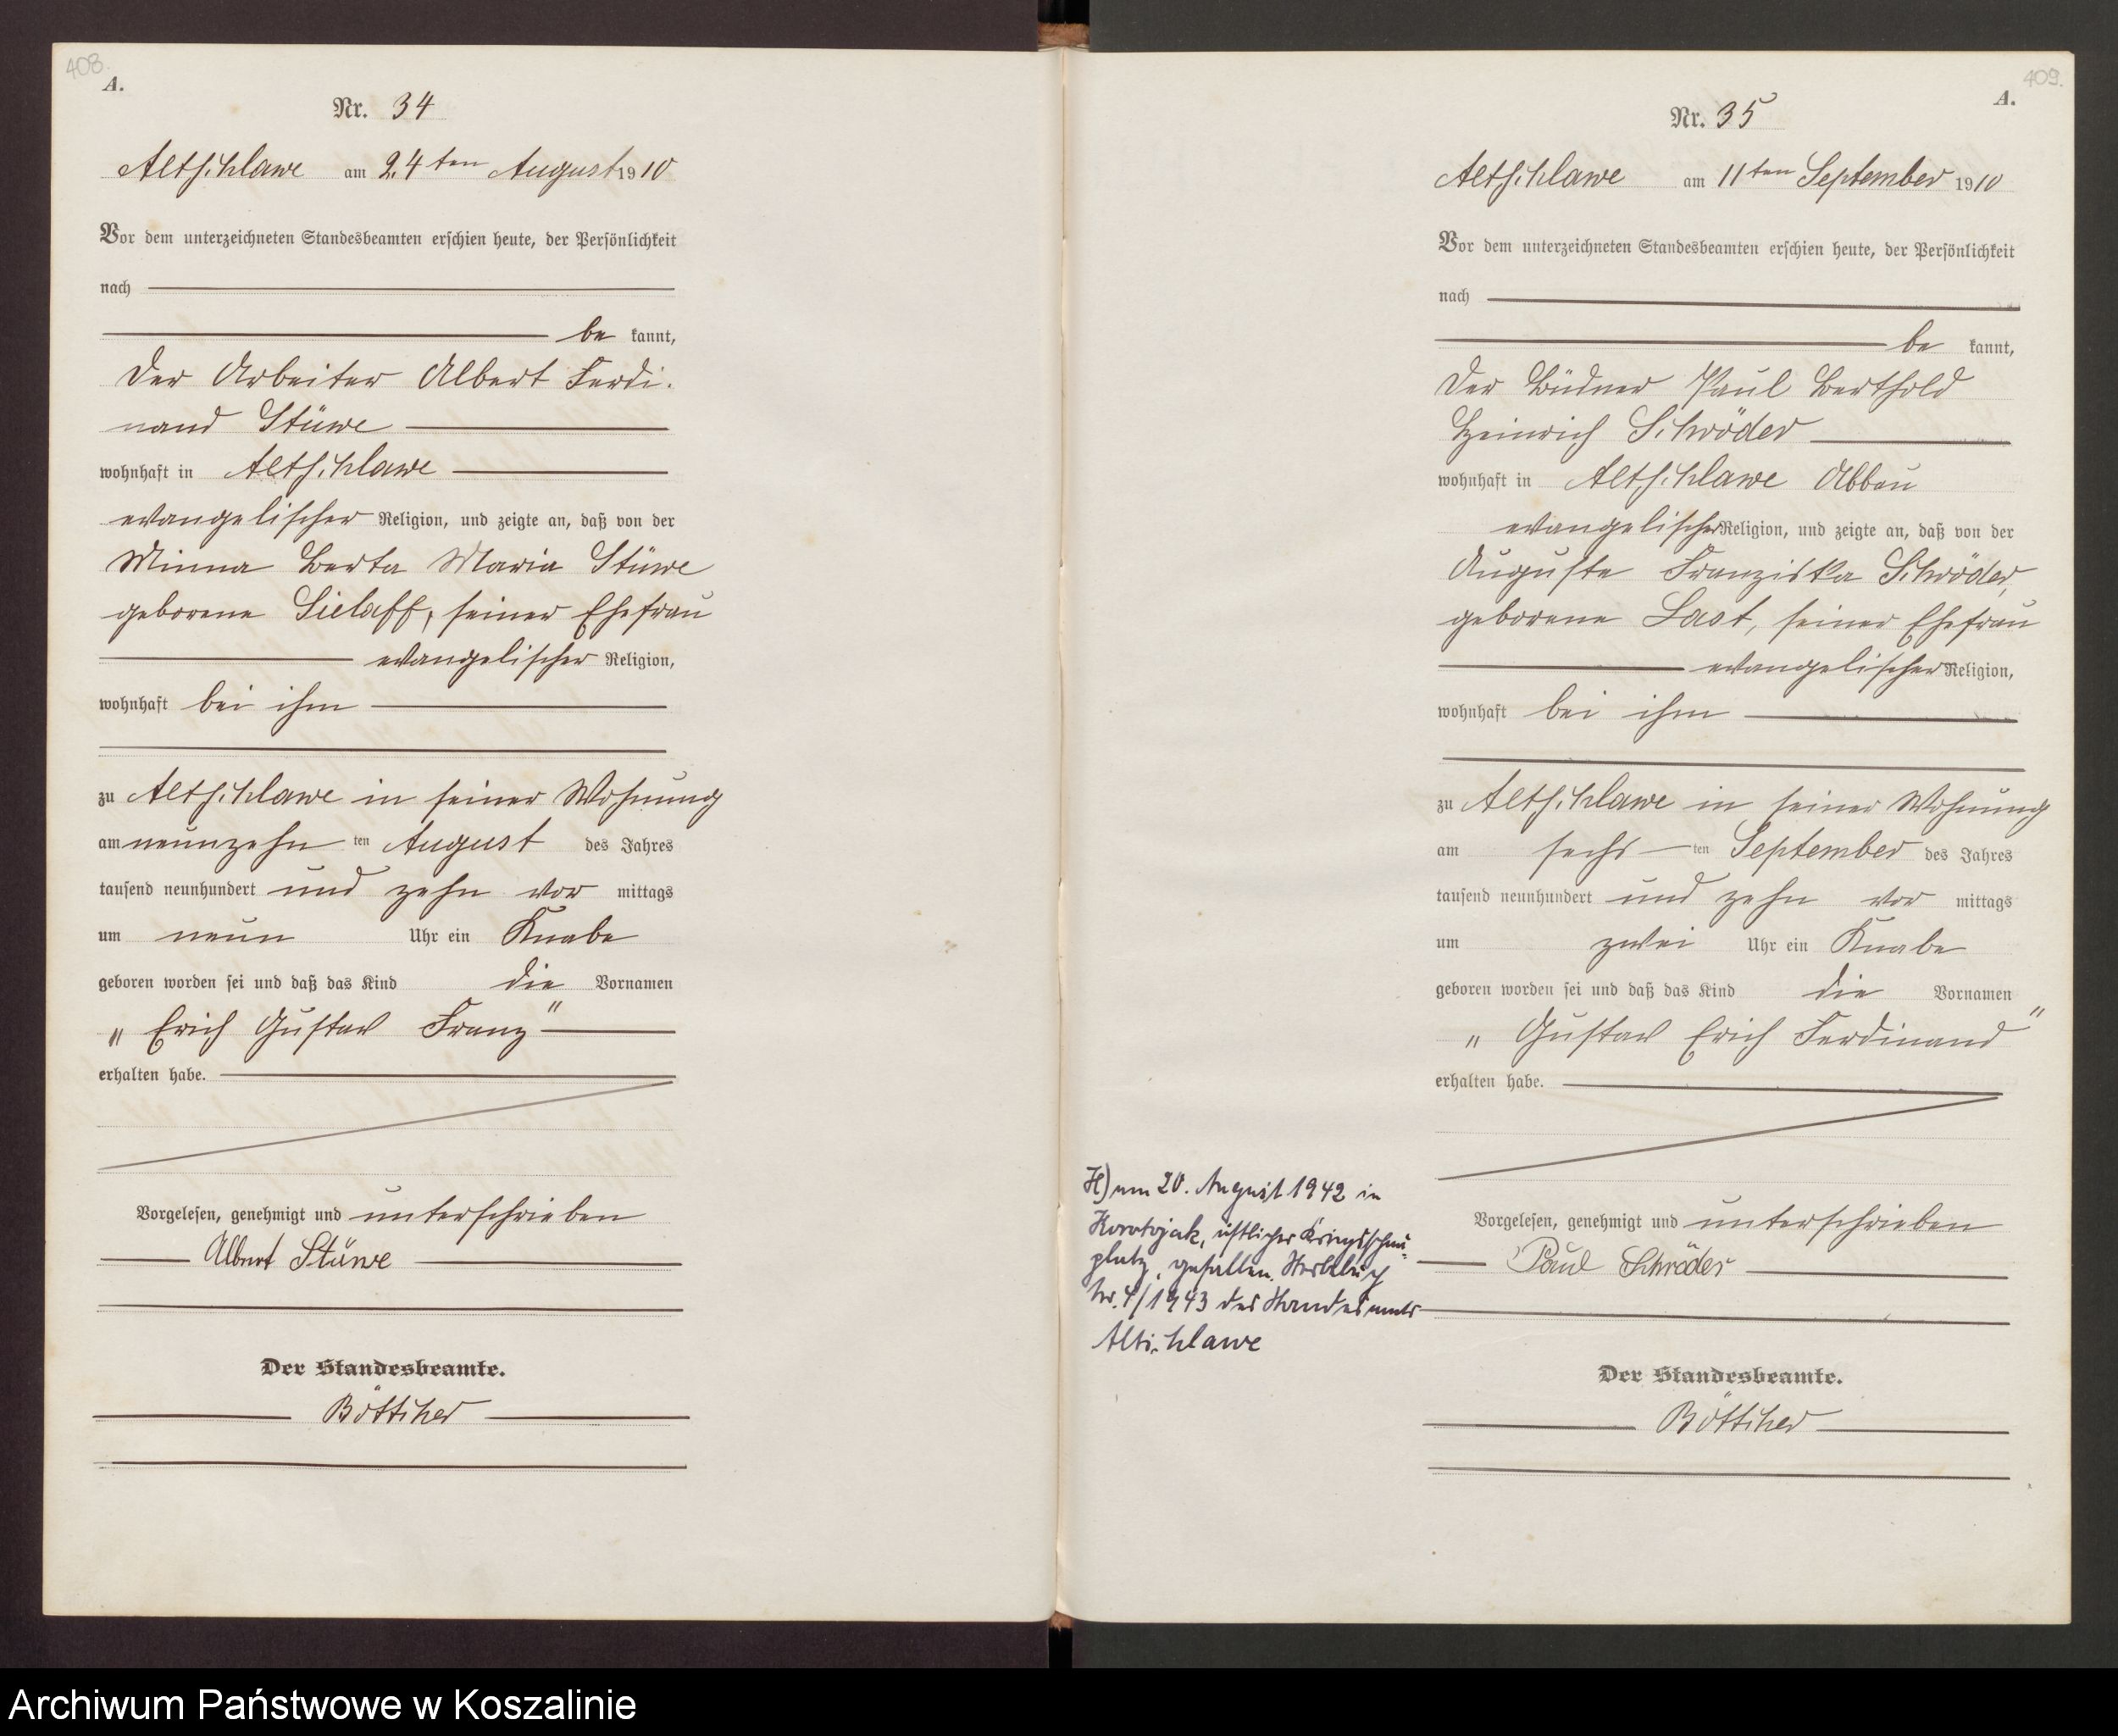 408.
A.
Nr. 34
Altschlawe am 24ten August 1910
Vor dem unterzeichneten Standesbeamten erschien heute, der Persönlichkeit
nach
be kannt,
der Arbeiter Albert Ferdi-
nand Stüwe
wohnhaft in Altschlawe
evangelischer Religion, und zeigte an, daß von der
Minna Berta Maria Stüwe
geborene Sielaff, seiner Ehefrau
evangelischer Religion,
wohnhaft bei ihm
zu Altschlawe in seiner Wohnung
am neunzehn ten August des Jahres
tausend neunhundert und zehn vor mittags
um neun Uhr ein Knabe
geboren worden sei und daß das Kind die Vornamen
„Erich Gustav Franz"
erhalten habe.
Vorgelesen, genehmigt und unterschrieben
Albert Stüwe
Der Standesbeamte.
Böttcher
409.
A.
Nr. 35
Altschlawe am 11ten September 1910
Vor dem unterzeichneten Standesbeamten erschien heute, der Persönlichkeit
nach
be kannt,
der Büdner Paul Berthold
Heinrich Schröder
wohnhaft in Altschlawe Abbau
evangelischer Religion, und zeigte an, daß von der
Auguste Franziska Schröder,
geborene Last, seiner Ehefrau
evangelischer Religion,
wohnhaft bei ihm
zu Altschlawe in seiner Wohnung
am sechs ten September des Jahres
tausend neunhundert und zehn vor mittags
um zwei Uhr ein Knabe
geboren worden sei und daß das Kind die Vornamen
„Gustav Erich Ferdinand"
erhalten habe.
H) am 20. August 1942 in
Korotojak, östlicher Kriegsschau-
platz, gefallen. Sterbbuch
Nr. 4/1943 des Standesamts
Altschlawe
Vorgelesen, genehmigt und unterschrieben
Paul Schröder
Der Standesbeamte.
Böttcher
Archiwum Państwowe w Koszalinie